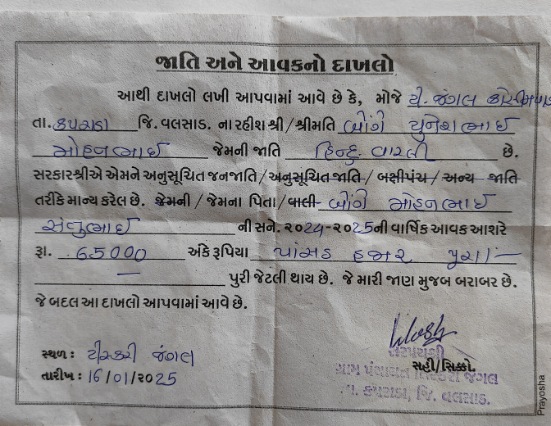 જાતિ અને આવકનો દાખલો
આથી દાખલો લખી આપવામાં આવે છે કે, મોજે ટી. જંગલ
તા. કપરાડા જિ. વલસાડ. ના રહીશ શ્રી/શ્રીમતિ
મોહનભાઈ જેમની જાતિ હિન્દુ વારલી છે.
સરકારશ્રીએ એમને અનુસૂચિત જનજાતિ/અનુસૂચિત જાતિ/બક્ષીપંચ/અન્ય જાતિ
તરીકે માન્ય કરેલ છે. જેમની/જેમના પિતા/વાલી- મોહનભાઈ
ની સને. ૨૦૨૪-૨૦૨૫ની વાર્ષિક આવક આશરે
રૂા. 65000 અંકે રૂપિયા પાંસઠ હજાર પુરા/-
પુરી જેટલી થાય છે. જે મારી જાણ મુજબ બરાબર છે.
જે બદલ આ દાખલો આપવામાં આવે છે.
સ્થળ: ટીસ્કરી જંગલ
સરપંચશ્રી
સહી/સિક્કો.
તારીખ: 16/01/૨૦25
ગ્રામ પંચાયત ટિસ્કરી જંગલ
તા. કપરાડા, જિ. વલસાડ.
Prayosha